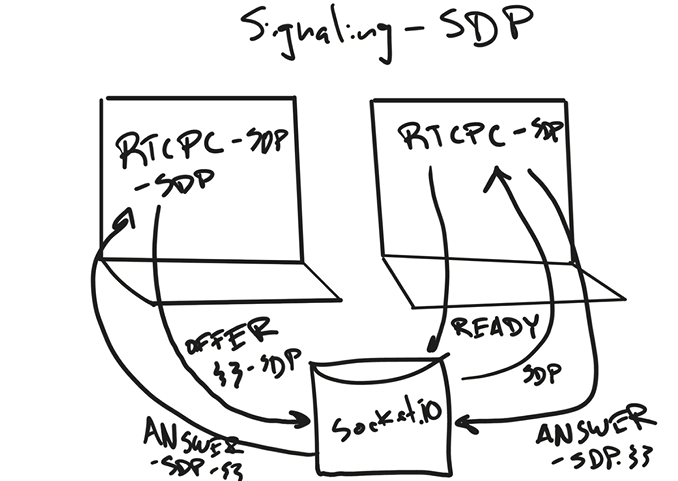 Signaling - SDP
RTCPC - SDP
- SDP
RTCPC - SDP
OFFER
{} - SDP
READY
SDP
Socket.io
ANSWER
- SDP - {}
ANSWER
- SDP. {}